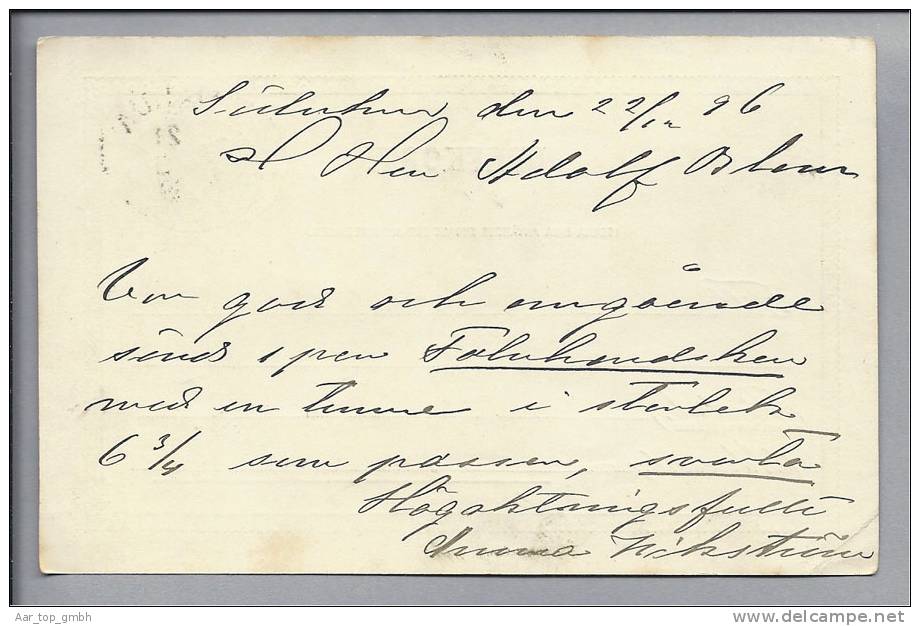 den 22/12 96
Herr Adolf
Var god och omgående
sänd 1 par Fodrhandskar
med en tumme i storlek
6 3/4 som passar, svarta
Högaktningsfullt
Anna Vikström
Aar_top_gmbh
www.delcampe.net